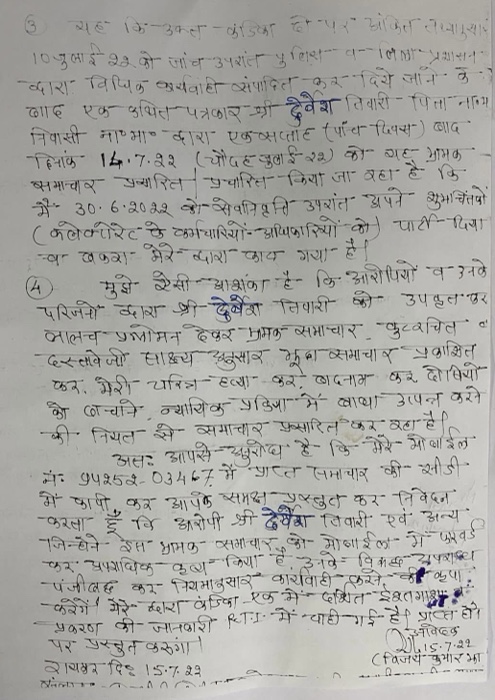 ③ यह कि उक्त कंडिका दो पर अंकित तथ्यानुसार
10 जुलाई 22 को जांच उपरांत पुलिस व जिला प्रशासन
द्वारा विधिक कार्यवाही संपादित कर दिये जाने के
बाद एक कथित पत्रकार श्री देवेश तिवारी पिता
निवासी द्वारा एक सप्ताह (पाँच दिवस) बाद
दिनांक 14.7.22 (चौदह जुलाई 22) को यह भ्रामक
समाचार प्रसारित/प्रचारित किया जा रहा है कि
मैं 30.6.2022 को सेवानिवृत्ति उपरांत अपने शुभचिंतकों
(कलेक्टोरेट के कर्मचारियों-अधिकारियों को) पार्टी दिया
व बकरा मेरे द्वारा काटा गया है।
④ मुझे ऐसी आशंका है कि आरोपियों व उनके
परिजनों द्वारा श्री देवेश तिवारी को उपकृत कर
लालच प्रलोभन देकर भ्रामक समाचार कुटरचित व
दस्तावेजी साक्ष्य अनुसार झूठा समाचार प्रकाशित
कर, मेरी चरित्र हत्या कर, बदनाम कर दोषियों
को बचाने, न्यायिक प्रक्रिया में बाधा उत्पन्न करने
की नियत से समाचार प्रसारित कर रहा है।
अतः आपसे अनुरोध है कि मेरे मोबाईल
नं. 94252-03467 में प्राप्त समाचार की सीडी
में कापी कर आपके समक्ष प्रस्तुत कर निवेदन
करता हूँ कि आरोपी श्री देवेश तिवारी एवं अन्य
जिन्होने इस भ्रामक समाचार को मोबाईल में फारवर्ड
कर अपराधिक कृत्य किया है उनके विरूद्ध अपराध
पंजीबद्ध कर नियमानुसार कार्यवाही करने की कृपा
करेंगे। मेरे द्वारा कंडिका एक में दर्शित इस्तगाशा
प्रकरण की जानकारी RTI में चाही गई है। प्राप्त होने
पर प्रस्तुत करूंगा। आवेदक
15.7.22
रायपुर दि. 15.7.22 (विजय कुमार झा